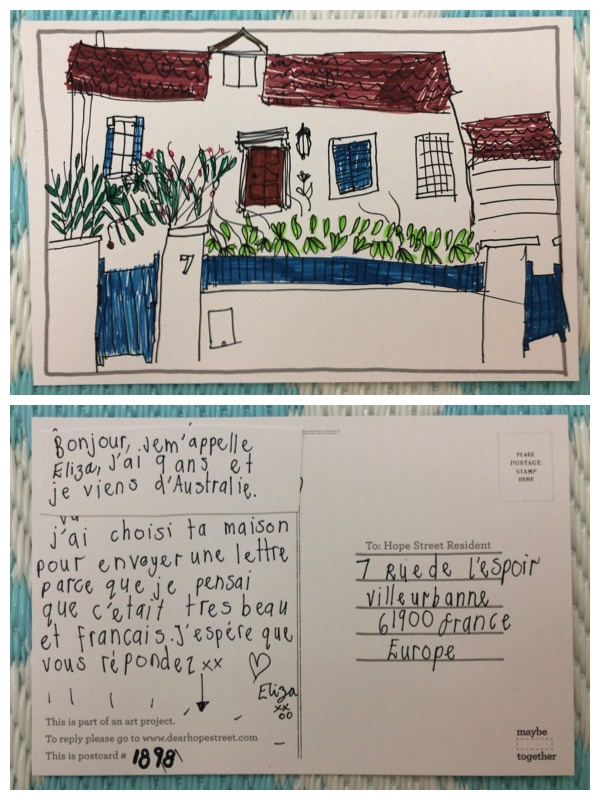 7
Bonjour, Jem'appelle
Eliza, j'ai 9 ans et
je viens d'Australie.
j'ai choisi ta maison
pour envoyer une lettre
parce que je pensai
que c'était tres beau
et francais. J'espére que
vous répondez xx ♡
Eliza
xx
oo
This is part of an art project.
To reply please go to www.dearhopestreet.com
This is postcard # 1898
PLACE
POSTAGE
STAMP
HERE
To: Hope Street Resident
7 Rue de l'espoir
villeurbanne
61900 france
Europe
maybe
together